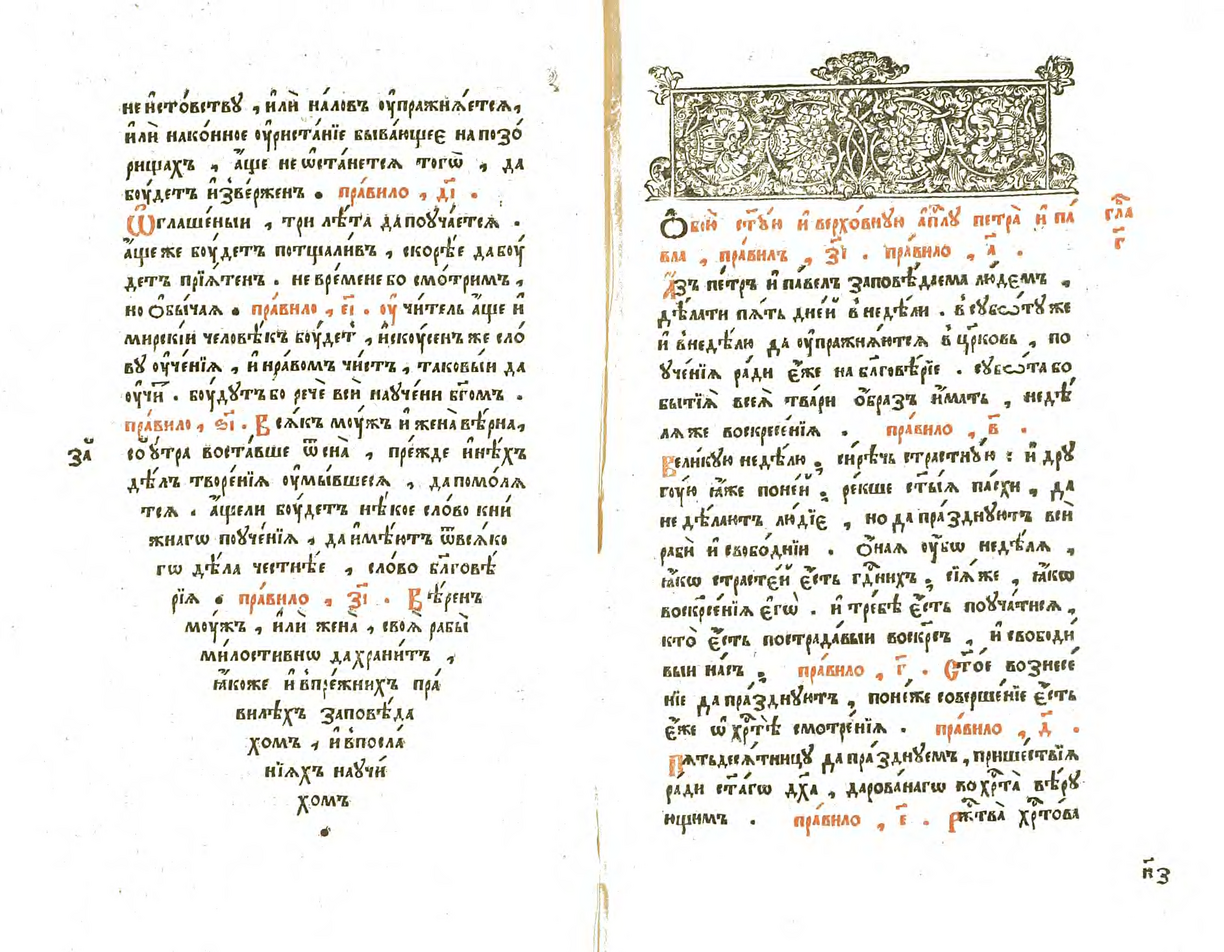 не и҆сто́вствꙋ , и҆лѝ на́ловъ ᲂу҆пражнѧ́етсѧ,
и҆лѝ нако́нное ᲂу҆риста́нїе быва́ющеє напозо́
рищахъ , а҆́ще не ѡ҆ста́нетсѧ тогѡ̀ , да
бꙋ́детъ и҆зве́рженъ . пра́вило , д҃і .
Ѡ҆глаше́ныи , три лѣ́та дапоꙋча́етсѧ .
а҆́ще же боу́детъ потщали́въ , скорѣ́е да боу́
детъ прїѧ́тенъ . не времене бо смо́тримъ ,
но ѻ҆бы́чаѧ . пра́вило , е҃і . ᲂу҆чи́тель а҆́ще и҆
мирскі́и человѣ́къ боу́детъ , и҆скоу́сенъ же сло́
вꙋ ᲂу҆че́нїѧ , и҆ нра́вомъ чи́стъ , таковы́и да
ᲂу҆чи́т . боу́дꙋтъ бо речѐ всѝ наꙋче́ни бг҃омъ .
пра́вило , ѕ҃і . Всѧ́къ моу́жъ и҆ жена̀ вѣ́рна,
соу́тра воста́вше ѿ сна̀ , пре́жде и҆нѣ́хъ
дѣ́лъ творе́нїѧ ᲂу҆мы́вшесѧ , да помо́лѧ
тсѧ . а҆́щели боу́детъ нѣ́кое сло́во кни́
жнагѡ поꙋче́нїѧ , да и҆мѣ́ютъ ѿвсѧ́ко
гѡ дѣ́ла честнѣ́е , сло́во бл҃говѣ́
рїѧ . пра́вило , з҃і . Вѣ́ренъ
моу́жъ , и҆лѝ жена̀ , своѧ̀ рабы̀
ми́лостивнѡ да храни́тъ ,
ꙗ҆́коже и҆ впре́жнихъ пра́
вилѣхъ заповѣ́да
хомъ , и҆ впосла́
нїѧхъ наꙋчи́
хомъ
.
за҃
Ѻ҆бою̀ ст҃ꙋю и҆ верхо́внꙋю а҆пл҃ꙋ петра̀ и҆ па́
вла , пра́вилъ , з҃і . пра́вило , а҃ .
гла
г҃
А҆́зъ пе́тръ и҆ па́велъ заповѣ́даема лю́демъ ,
дѣ́лати пѧ́ть дне́й в недѣ́ли . в сꙋбѡ́тꙋ же
и҆ в недѣ́лю да ᲂу҆пражнѧ́ютсѧ в цр҃ковь , по
ꙋче́нїѧ ра́ди є҆́же на бл҃говѣ́рїе . сꙋбѡ́та бо
бытїѧ̀ всеѧ̀ тва́ри ѻ҆́бразъ и҆́мать , недѣ́
лѧ же воскресе́нїѧ . пра́вило , в҃ .
Вели́кꙋю недѣ́лю , си́рѣчь стра́стнꙋю : и҆ дрꙋ
гоу́ю ꙗ҆́же поне́й , ре́кше ст҃ы́ѧ па́схи , да
не дѣ́лаютъ лю́дїє , но да пра́зднꙋютъ всѝ
рабѝ и҆ свобо́днїи . Ѻ҆́наѧ ᲂу҆́бѡ недѣ́лѧ ,
ꙗ҆́кѡ страсте́й є҆́сть гд҃нихъ , сїѧ́ же , ꙗ҆́кѡ
воскр҃се́нїѧ є҆гѡ̀ . и҆ тре́бѣ є҆́сть поꙋча́тисѧ,
кто̀ є҆́сть пострада́выи воскр҃съ , и҆ свободи́
выи на́съ . пра́вило , г҃ . Ст҃о́е вознесе́
нїе да пра́зднꙋютъ , поне́же соверше́нїе є҆́сть
є҆́же ѡ҆ хр҃тѣ̀ смотре́нїѧ . пра́вило , д҃ .
Пѧтьдесѧ́тницꙋ да пра́зднꙋемъ, прише́ствїѧ
ра́ди ст҃а́гѡ дх҃а , дарова́нагѡ во хр҃та̀ вѣ́рꙋ
ющимъ . пра́вило , е҃ . Рж҃тва̀ хр҃то́ва
п҃з